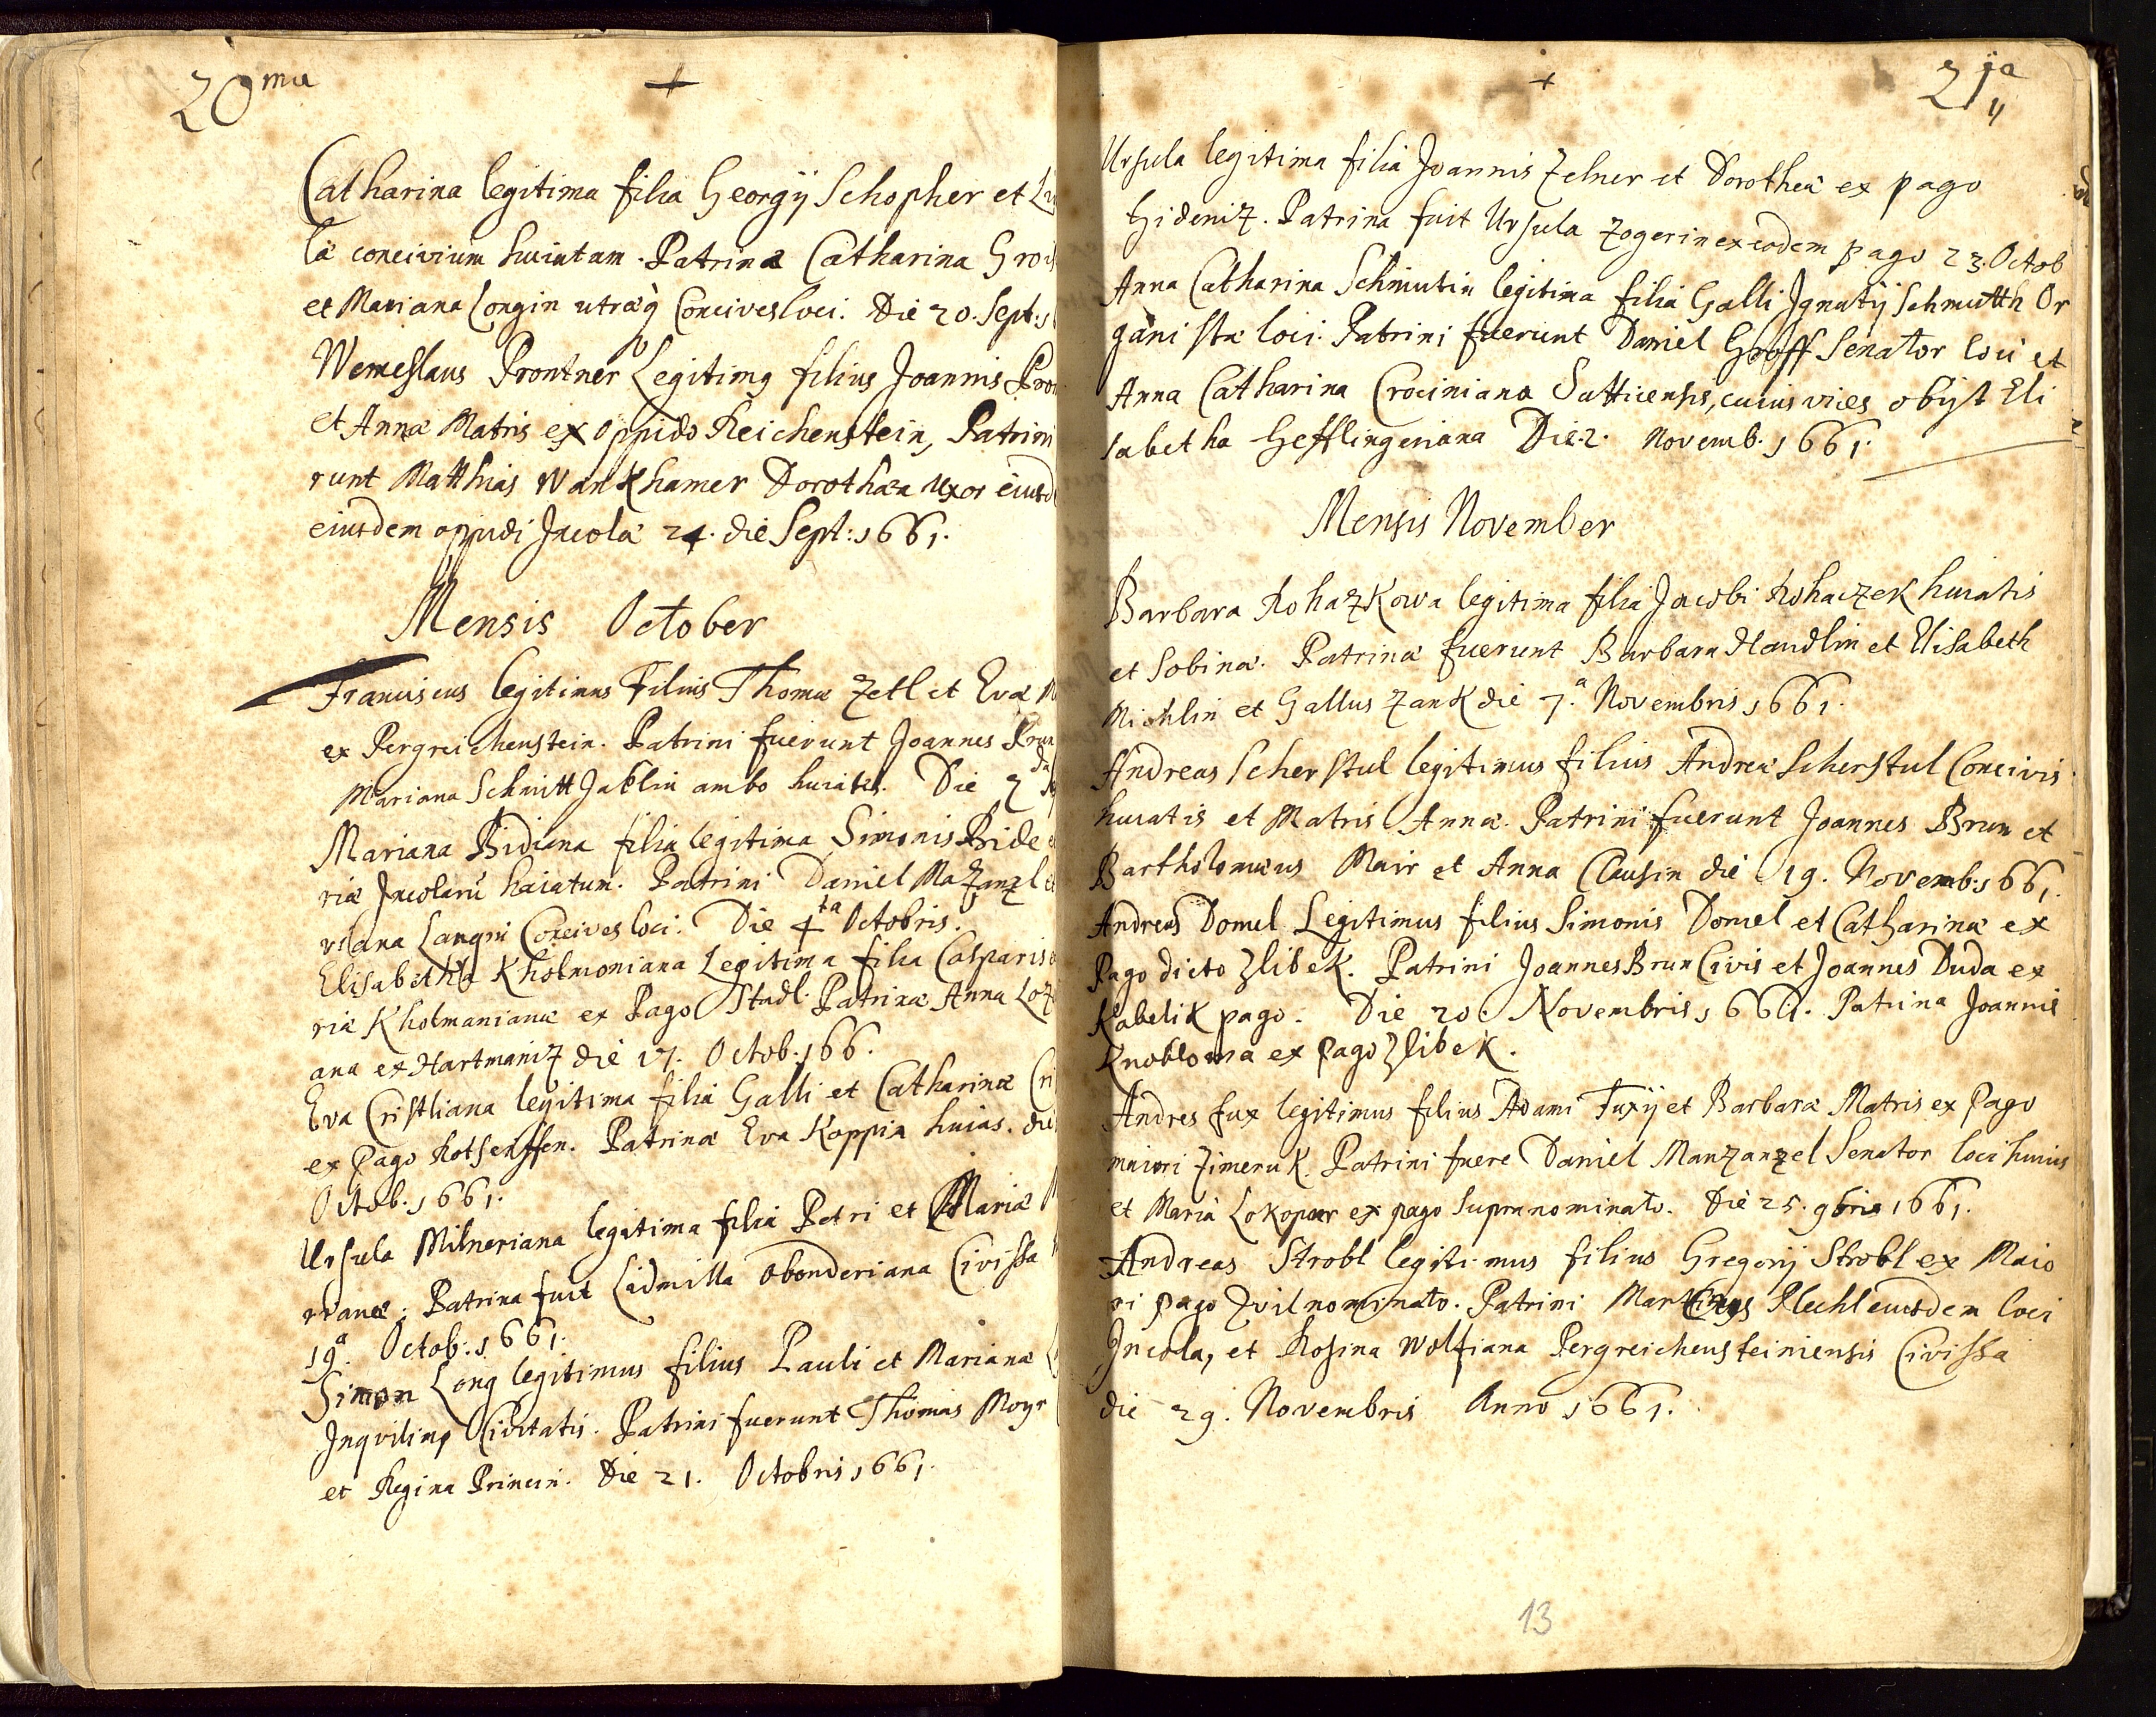 20ma
+
Catharina legitima filia Georgij Schopher et
lã concivium huiatum. Patrinæ Catharina
et Mariana Longin utræq Concives loci. Die 20. Sept:
Wenceslaus Prontner Legitimg filius Joannis
et Annæ Matris ex Oppido Reichenstein, Patrini
runt Matthias Wankhamer Dorothæa uxor
eiusdem oppidi Incolæ 24. die Sept: 1661.
Mensis October
Franciscus legitimus Filius Thomæ Zetl et Evæ
ex Pergreichenstein. Patrini fuerunt Joannes
Mariana Schmitt Jaklin ambo huiates. Die 2da
Mariana Bidiana filia legitima Simonis Bide
riæ Incolarũ huiatum. Patrini Daniel Mazanzl
Die 4ta Octobris.
Elisabetha Kholmoniana Legitima filia Casparis
riæ Kholmanianæ ex Pago Stadl. Patrinæ Anna
ana ex Hartmaniz die 17. Octob. 166.
Eva Cristliana legitima filia Galli et Catharinæ
ex Pago Rotsenffen. Patrinæ Eva Koppin huias. die
Octob. 1661.
Ursula Milneriana legitima filia Petri et Mariæ
rianæ; Patrina fuit Lidmilla Obonderiana Civissa
19a. Octob: 1661.
Simon Long legitimus filius Pauli et Marianæ
Inqviling Civitatis. Patrini fuerunt Thomas Moyr
et Regina Princin. Die 21. Octobris 1661.
+
21ja
Ursula legitima filia Joannis Zelner et Dorotheæ ex pago
Hideniz. Patrina fuit Ursula Zogerin ex eodem pago 23. Octob
Anna Catharina Schmutin legitima filia Galli Ignatij Schmutth Or
ganistæ loci. Patrini fuerunt Daniel Groff Senator loci et
Anna Catharina Crociniana Sutticensis, cuius vices obijt Eli
sabetha Hefflingeriana Die 2. Novemb. 1661.
Mensis November
Barbara Rohazkowa legitima filia Jacobi Rohaczek huiatis
et Sobinæ. Patrinæ fuerunt Barbara Handlin et Elisabeth
Michlin et Gallus Zank die 7.a Novembris 1661.
Andreas Scherstul legitimus filius Andreæ Scherstul Concivis
huiatis et Matris Annæ. Patrini fuerunt Joannes Brun et
Bartholomæus Mair et Anna Clausin die 19. Novemb: 1661.
Andreas Domel Legitimus filius Simonis Domel et Catharinæ ex
Pago dicto Zlibek. Patrini Joannes Brun Civis et Joannes Duda ex
Kabelik pago. Die 20. Novembris 1661. Patrina Joannis
Knoblowa ex Pago Zlibek.
Andres fux legitimus filius Adami Fuxij et Barbaræ Matris ex Pago
maiori Zimeruk. Patrini fuere Daniel Manzanzel Senator loci huius
et Maria Lokopar ex pago supra nominato. Die 25. 9bris 1661.
Andreas Strobl legitimus filius Gregorij Strobl ex Maio
ri pago Zvil nominato. Patrini Martinus Plechl eiusdem loci
Incola, et Rosina Wolfiana Pergreichensteiniensis Civissa
die 29. Novembris Anno 1661.
13